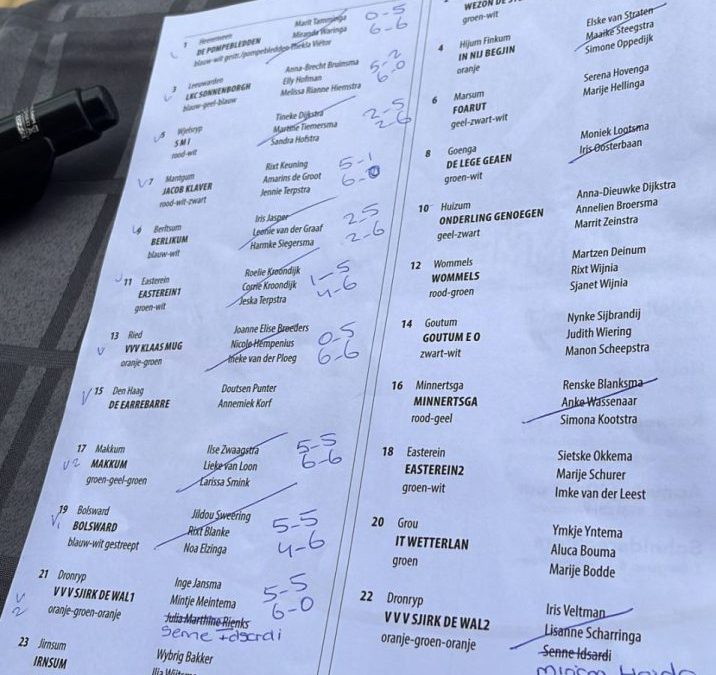 1 Heerenveen Marit Tamminga 0-5
DE POMPEBLEDDEN Miranda Scaringa 6-6
blauw-wit gestr./pompebledden Thirkla Vietor
3 Leeuwarden Anna-Brecht Bruinsma 5-2
LKC SONNENBORGH Elly Hofman 6-0
blauw-geel-blauw Melissa Rianne Hiemstra
V5 Wjelsryp Tineke Dijkstra 2-5
S M I Martine Tiemersma 2-6
rood-wit Sandra Hofstra
V7 Mantgum Rixt Keuning 5-1
JACOB KLAVER Amarins de Groot 6-0
rood-wit-zwart Jennie Terpstra
9 Berltsum Iris Jasper 2-5
BERLIKUM Leonie van der Graaf 2-6
blauw-wit Harmke Siegersma
11 Easterein Roelie Kroondijk 1-5
EASTEREIN1 Corrie Kroondijk 4-6
groen-wit Jeska Terpstra
13 Ried Joanne Elise Broeders 0-5
V VVV KLAAS MUG Nicole Hempenius 6-6
oranje-groen Ineke van der Ploeg
V 15 Den Haag Doutsen Punter
DE EARREBARRE Annemiek Korf
17 Makkum Ilse Zwaagstra 5-5
V2 MAKKUM Lieke van Loon 6-6
groen-geel-groen Larissa Smink
19 Bolsward Jildou Sweering 5-5
V1 BOLSWARD Rixt Blanke 4-6
blauw-wit gestreept Noa Elzinga
21 Dronryp Inge Jansma 5-5
V V V V SJIRK DE WAL1 Mintje Meintema 6-0
2 oranje-groen-oranje Julia Marthine Rienks
Senne Idsardi
23 Jirnsum Wybrig Bakker
IRNSUM
WEZON DE
groen-wit
4 Hijum Finkum Elske van Straten
IN NIJ BEGJIN Maaike Steegstra
oranje Simone Oppedijk
6 Marsum Serena Hovenga
FOARUT Marije Hellinga
geel-zwart-wit
8 Goenga Moniek Lootsma
DE LEGE GEAEN Iris Oosterbaan
groen-wit
10 Huizum Anna-Dieuwke Dijkstra
ONDERLING GENOEGEN Annelien Broersma
geel-zwart Marrit Zeinstra
12 Wommels Martzen Deinum
WOMMELS Rixt Wijnia
rood-groen Sjanet Wijnia
14 Goutum Nynke Sijbrandij
GOUTUM E O Judith Wiering
zwart-wit Manon Scheepstra
16 Minnertsga Renske Blanksma
MINNERTSGA Anke Wassenaar
rood-geel Simona Kootstra
18 Easterein Sietske Okkema
EASTEREIN2 Marije Schurer
groen-wit Imke van der Leest
20 Grou Ymkje Yntema
IT WETTERLAN Aluca Bouma
groen Marije Bodde
22 Dronryp Iris Veltman
V V V SJIRK DE WAL2 Lisanne Scharringa
oranje-groen-oranje Senne Idsardi